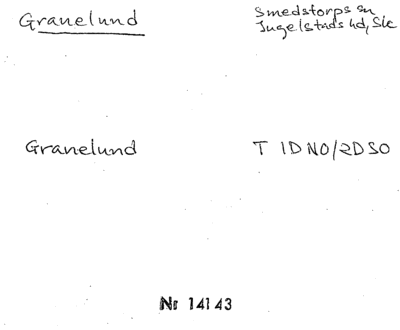 Granelund
Smedstorps sn
Ingelstads hd, Sk
Granelund
T 1D NO/2D SO
Nr 14143